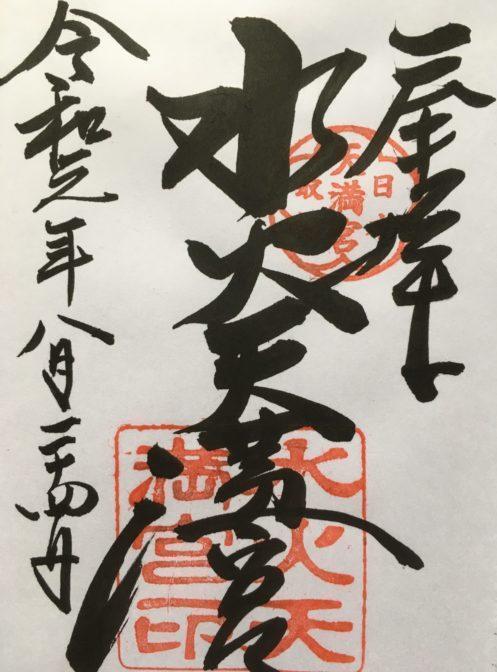 奉拝
水火天満宮
令和元年八月二十四日
天満宮
水火天
満宮印